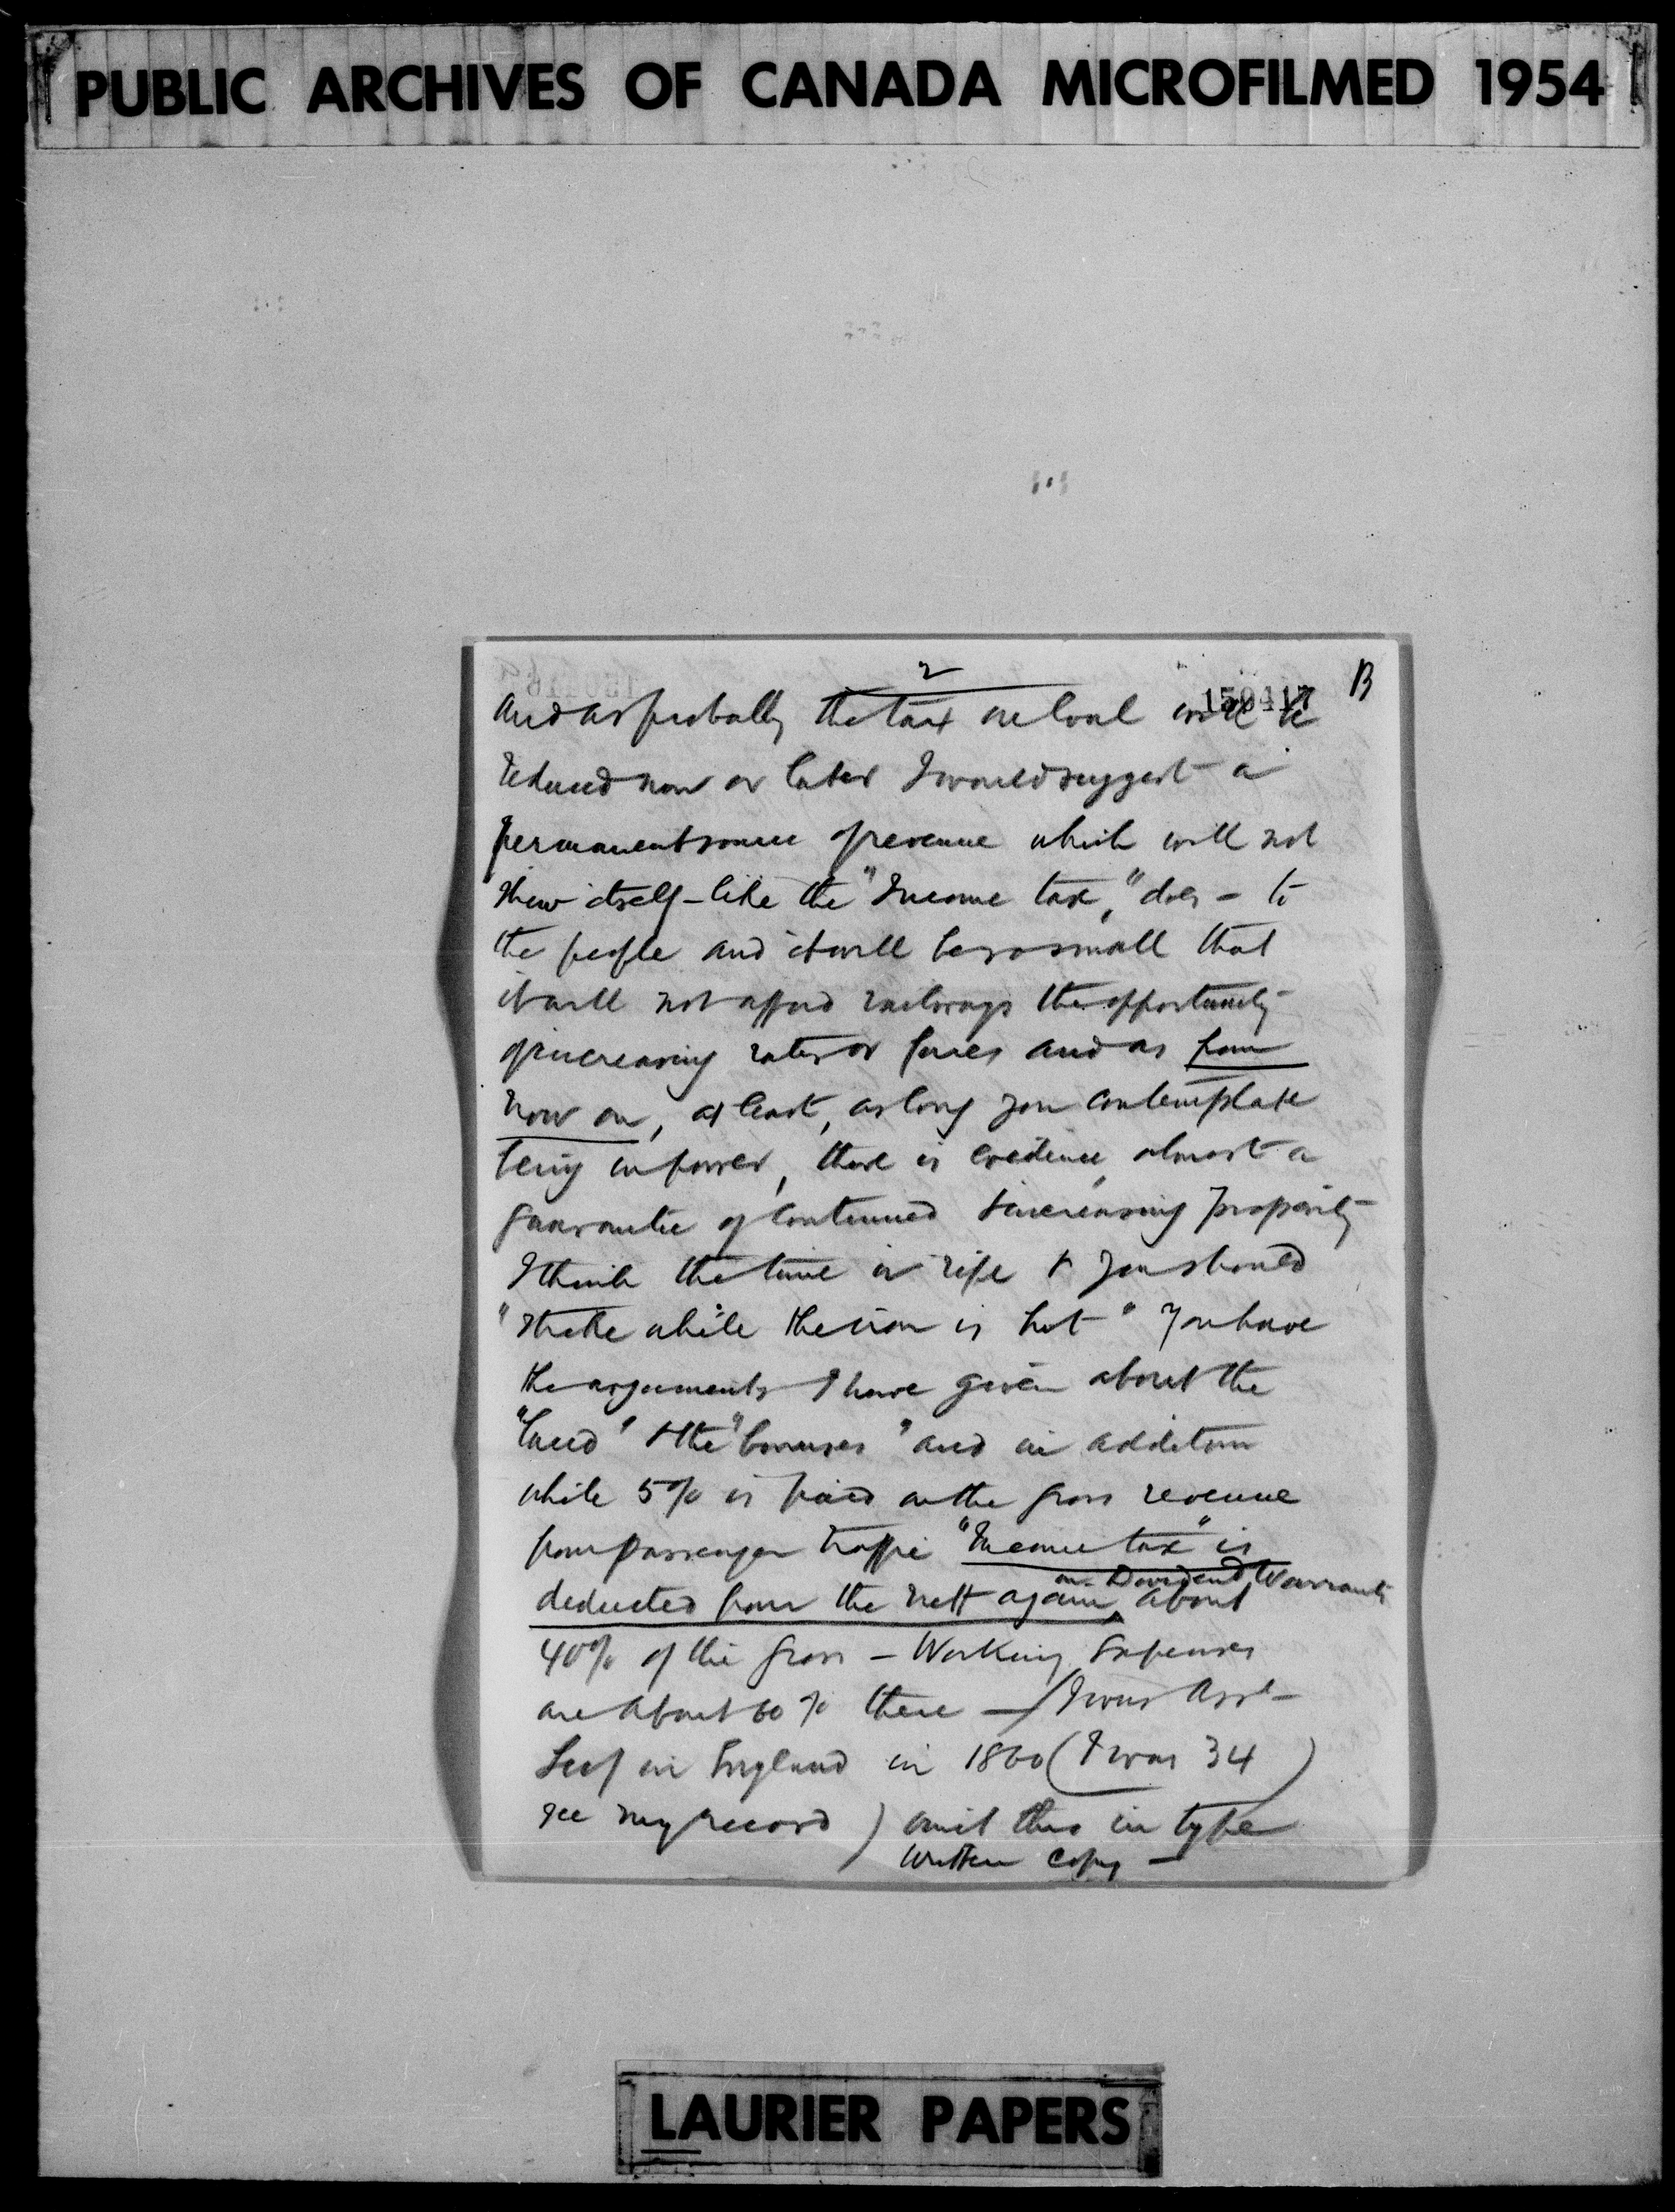 PUBLIC ARCHIVES OF CANADA MICROFILMED 1954
2
150417 B
and as probably the tax on coal will be
reduced now or later I would suggest a
permanent source of revenue which will not
shew itself - like the "Income tax," does - to
the people and it will be so small that
it will not afford railways the opportunity
of increasing rates or fares and as from
now on, at least, as long you contemplate
being in power, there is evidence, almost a
guarantee of continued & increasing prosperity
I think the time is ripe & you should
"strike while the iron is hot" You have
the arguments I have given about the
"land" & the "bonuses" and in addition
while 5% is paid on the gross revenue
from passenger traffic "Income tax" is
deducted from the nett again on Dividend Warrants about
40% of the gross - Working Expenses
are about 60% there - (I was Asst
Secy in England in 1860 (I was 34)
see my record) omit this in type
written copy -
LAURIER PAPERS